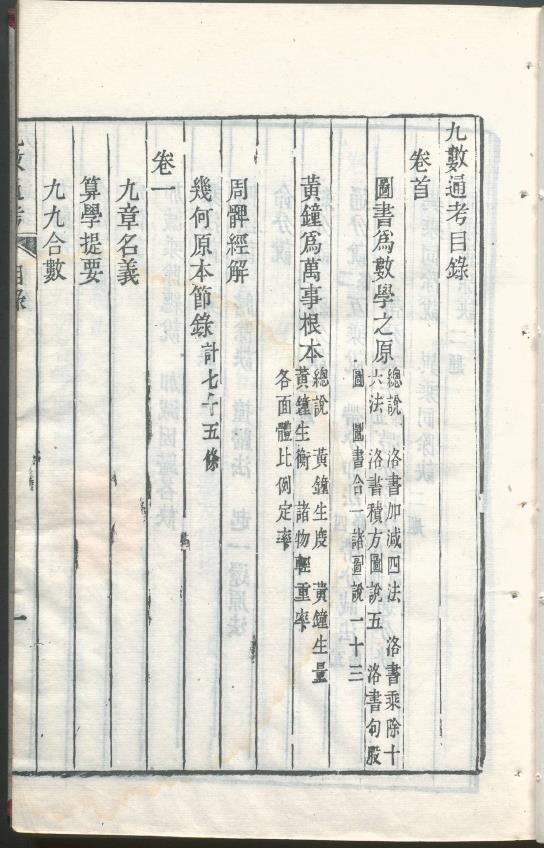 九數通考目錄
卷首
圖書爲數學之原
總說　洛書加減四法　洛書乘除十
六法　洛書積方圖說五　洛書句股
圖　圖書合一諸圖說一十三
黃鐘爲萬事根本
總說　黃鐘生度　黃鐘生量
黃鐘生衡　諸物輕重率
各面體比例定率
周髀經解
幾何原本節錄計七十五條
卷一
九章名義
算學提要
九九合數
目錄
一